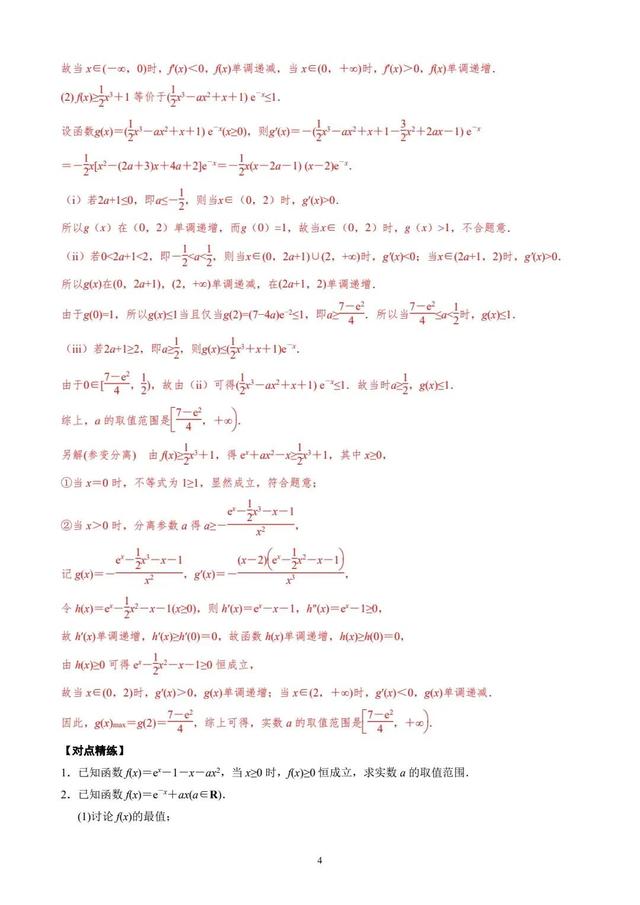 故当 x∈(－∞，0)时，f′(x)＜0，f(x)单调递减，当 x∈(0，＋∞)时，f′(x)＞0，f(x)单调递增．
(2) f(x)≥\frac{1}{2}x³＋1 等价于(\frac{1}{2}x³－ax²＋x＋1) e⁻ˣ≤1．
设函数g(x)＝(\frac{1}{2}x³－ax²＋x＋1) e⁻ˣ(x≥0)，则g′(x)＝－(\frac{1}{2}x³－ax²＋x＋1－\frac{3}{2}x²＋2ax－1) e⁻ˣ
＝－\frac{1}{2}x[x²－(2a＋3)x＋4a＋2]e⁻ˣ＝－\frac{1}{2}x(x－2a－1) (x－2)e⁻ˣ．
（i）若2a+1≤0，即a≤－\frac{1}{2}，则当x∈（0，2）时，g′(x)>0．
所以g（x）在（0，2）单调递增，而g（0）=1，故当x∈（0，2）时，g（x）>1，不合题意．
（ii）若0<2a+1<2，即－\frac{1}{2}<a<\frac{1}{2}，则当x∈(0，2a+1)∪(2，+∞)时，g′(x)<0；当x∈(2a+1，2)时，g′(x)>0．
所以g(x)在(0，2a+1)，(2，+∞)单调递减，在(2a+1，2)单调递增．
由于g(0)=1，所以g(x)≤1当且仅当g(2)=(7−4a)e⁻²≤1，即a≥\frac{7－e²}{4}．所以当\frac{7－e²}{4}≤a<\frac{1}{2}时，g(x)≤1．
（iii）若2a+1≥2，即a≥\frac{1}{2}，则g(x)≤(\frac{1}{2}x³＋x＋1)e⁻ˣ．
由于0∈[\frac{7－e²}{4}，\frac{1}{2})，故由（ii）可得(\frac{1}{2}x³－ax²＋x＋1) e⁻ˣ≤1．故当时a≥\frac{1}{2}，g(x)≤1．
综上，a 的取值范围是[\frac{7－e²}{4}，＋∞)．
另解(参变分离)　由 f(x)≥\frac{1}{2}x³＋1，得 eˣ＋ax²－x≥\frac{1}{2}x³＋1，其中 x≥0，
①当 x＝0 时，不等式为 1≥1，显然成立，符合题意；
②当 x＞0 时，分离参数 a 得 a≥－\frac{eˣ－\frac{1}{2}x³－x－1}{x²}，
记 g(x)＝－\frac{eˣ－\frac{1}{2}x³－x－1}{x²}，g′(x)＝－\frac{(x－2)(eˣ－\frac{1}{2}x²－x－1)}{x³}，
令 h(x)＝eˣ－\frac{1}{2}x²－x－1(x≥0)，则 h′(x)＝eˣ－x－1，h″(x)＝eˣ－1≥0，
故 h′(x)单调递增，h′(x)≥h′(0)＝0，故函数 h(x)单调递增，h(x)≥h(0)＝0，
由 h(x)≥0 可得 eˣ－\frac{1}{2}x²－x－1≥0 恒成立，
故当 x∈(0，2)时，g′(x)＞0，g(x)单调递增；当 x∈(2，＋∞)时，g′(x)＜0，g(x)单调递减．
因此，g(x)max＝g(2)＝\frac{7－e²}{4}，综上可得，实数 a 的取值范围是[\frac{7－e²}{4}，＋∞)．
【对点精练】
1．已知函数 f(x)＝eˣ－1－x－ax²，当 x≥0 时，f(x)≥0 恒成立，求实数 a 的取值范围．
2．已知函数 f(x)＝e⁻ˣ＋ax(a∈R)．
(1)讨论 f(x)的最值；
4